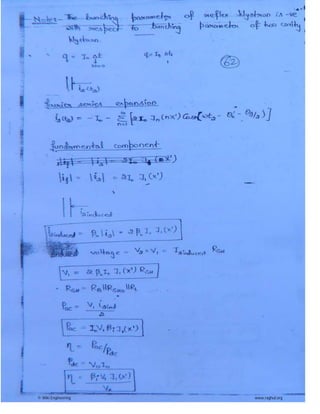 Note:- The bunching parameter of reflex klystron is -ve
with respect to bunching parameter of two cavity
klystron
q = I₀ Δt q = I₂ Δt₂
62
i₂(t₂)
fourier series expansion
i₂(t₂) = -I₀ - Σ [2I₀ Jₙ(nx') Cos n(ωt₂ - θ₀' - θg/2)]
n=1
fundamental component
|if| = |i₂| = 2I₀ J₁(x')
|if| = |i₂| = 2I₀ J₁(x')
I₂induced
I₂induced = βᵢ|i₂| = 2βᵢ I₀ J₁(x')
Induced voltage - V₂ = V₁ = I₂induced RSH
V₁ = 2βᵢ I₀ J₁(x') RSH
RSH = RB||RSHO||RL
Pac = V₁ i₂ind / 2
Pac = I₀V₁ βᵢ J₁(x')
η = Pac/Pdc
Pdc = V₀I₀
η = βᵢV₁ J₁(x') / V₀
© Wiki Engineering www.raghul.org